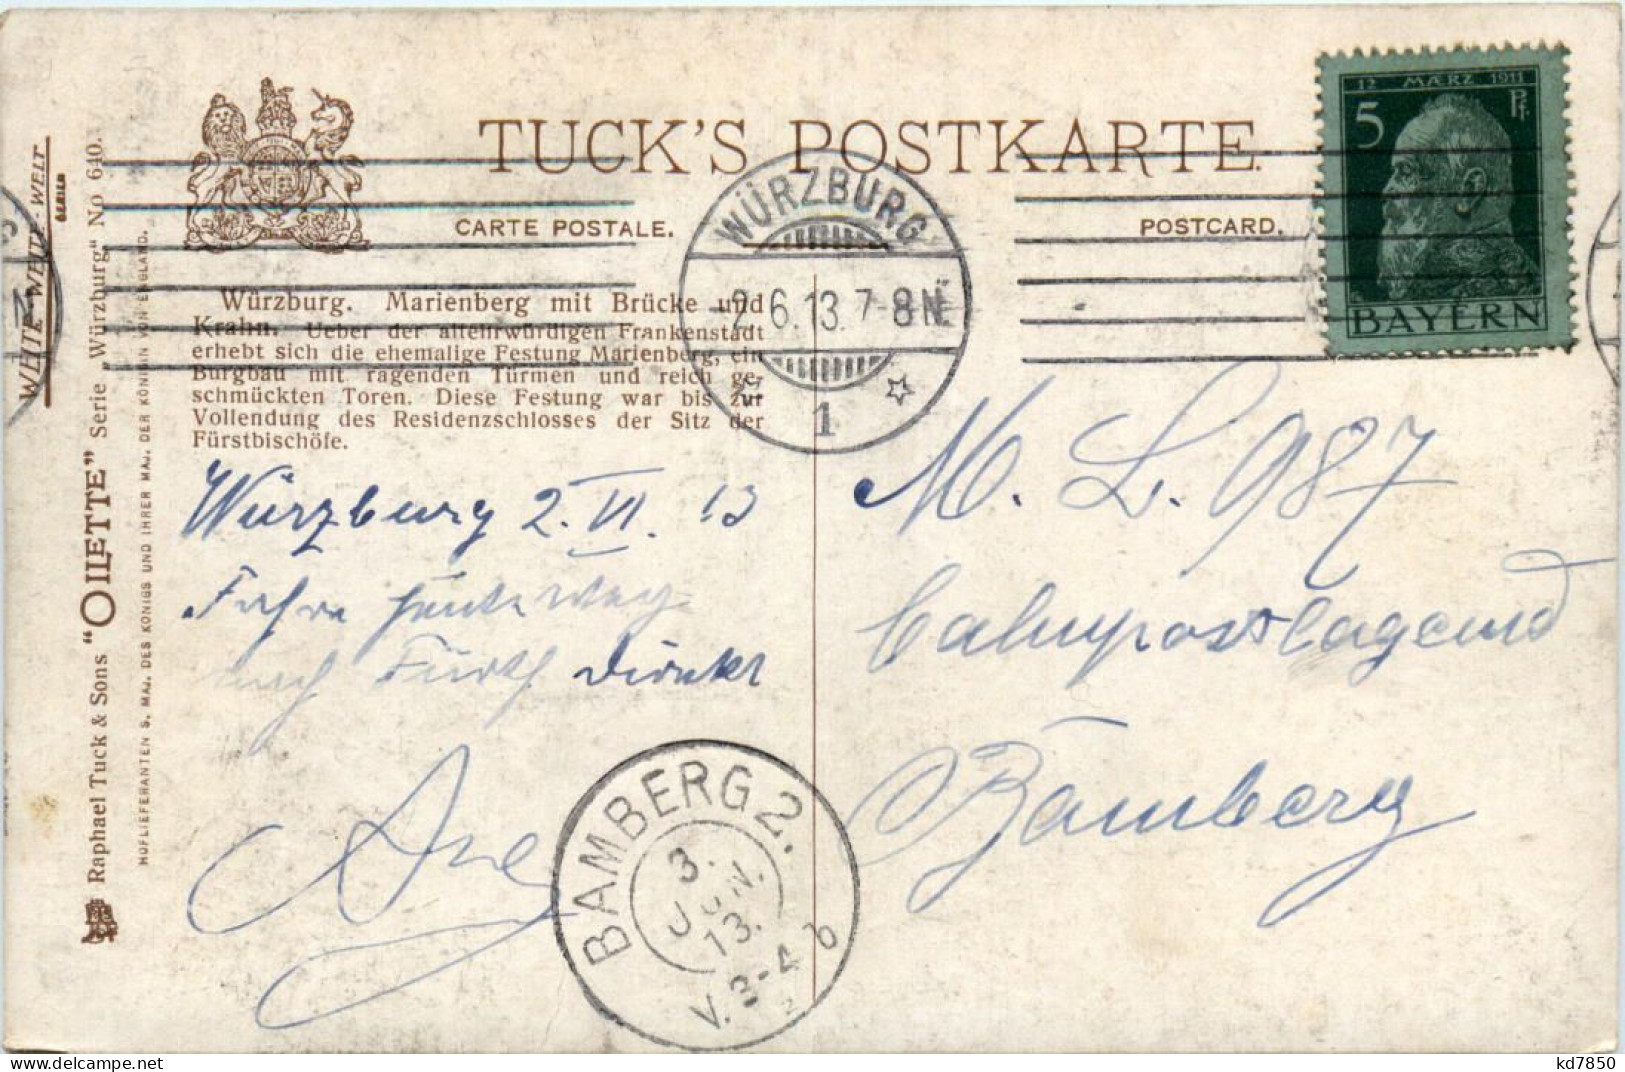 TUCK'S POSTKARTE.
CARTE POSTALE.
POSTCARD.
12 MÆRZ 1911
5 Pf.
BAYERN
WÜRZBURG
2.6.13. 7-8 N.
1
Würzburg. Marienberg mit Brücke und
Krahn. Ueber der altehrwürdigen Frankenstadt
erhebt sich die ehemalige Festung Marienberg, ein
Burgbau mit ragenden Türmen und reich ge-
schmückten Toren. Diese Festung war bis zur
Vollendung des Residenzschlosses der Sitz der
Fürstbischöfe.
WEITE-WELT
SERIEN
Raphael Tuck & Sons "OILETTE" Serie „Würzburg“ No 640.
HOFLIEFERANTEN S. MAJ. DES KÖNIGS UND IHRER MAJ. DER KÖNIGIN VON ENGLAND.
Würzburg 2. VI. 13
Fahre heute
nach Fürth
M. L. 987
bahnpostlagernd
Bamberg
BAMBERG 2.
3.
JUN.
13.
V. 3-4
b
kd7850